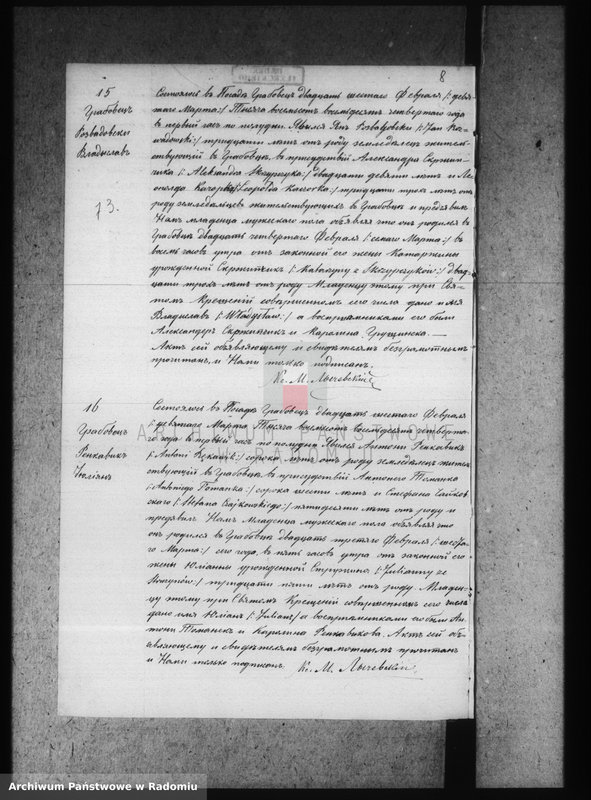 8
15
Грабовецъ
Розвадовски
Владиславъ
73.
Состоялось въ Посадѣ Грабовецъ двадцать шестаго Февраля /: девя-
таго Марта :/ Тысяча восемьсотъ восемьдесятъ четвертаго года
въ первый часъ по полудни. Явился Янъ Розвадовски /: Jan Roz-
wadowski :/ тридцати лѣтъ отъ роду земледѣлецъ житель-
ствующій въ Грабовцѣ, въ присутствіи Александра
/: Aleksandra :/ двадцати девяти лѣтъ и
:/ тридцати трехъ лѣтъ отъ
роду земледѣльцевъ жительствующихъ въ Грабовцѣ и предъявилъ
Намъ младенца мужескаго пола объявляя что онъ родился въ
Грабовцѣ двадцать четвертаго Февраля /: седьмаго Марта :/ въ
восемь часовъ утра отъ законной его жены Катаржины
урожденной /: Katarzyny z :/ двад-
цати трехъ лѣтъ отъ роду. Младенцу этому при Свя-
томъ Крещеніи совершенномъ его числа дано имя
Владиславъ /: Władysław :/ а воспріемниками его были
Александеръ и Каролина
Актъ сей объявляющему и свидѣтелямъ безграмотнымъ
прочитанъ, и Нами только подписанъ.
Кс. М. Лычевскій
16
Грабовецъ
Ренкавикъ
Юліанъ
Состоялось въ Посадѣ Грабовецъ двадцать шестаго Февраля
/: девятаго Марта :/ Тысяча восемьсотъ восемьдесятъ четверта-
го года въ первый часъ по полудни. Явился Антони Ренкавикъ
/: Antoni :/ сорока лѣтъ отъ роду земледѣлецъ житель-
ствующій въ Грабовцѣ, въ присутствіи Антонего Томанка
/: Antoniego Tomanka :/ сорока шести лѣтъ и Стефана Чайков-
скаго /: Stefana Czajkowskiego :/ пятидесяти лѣтъ отъ роду и
предъявилъ Намъ Младенца мужескаго пола объявляя что
онъ родился въ Грабовцѣ двадцать третьяго Февраля /: шеста-
го Марта :/ его года, въ пять часовъ утра отъ законной его
жены Юліанны урожденной /: Julianny ze
:/ тридцати пяти лѣтъ отъ роду. Младен-
цу этому при Святомъ Крещеніи совершенномъ его числа
дано имя Юліанъ /: Julian :/ а воспріемниками его были Ан-
тони Томанекъ и Каролина Ренкавикова. Актъ сей объ-
являющему и свидѣтелямъ безграмотнымъ прочитанъ
и Нами только подписанъ. Кс. М. Лычевскій
ARCHIWUM PAŃSTWOWE
W RADOMIU
Archiwum Państwowe w Radomiu